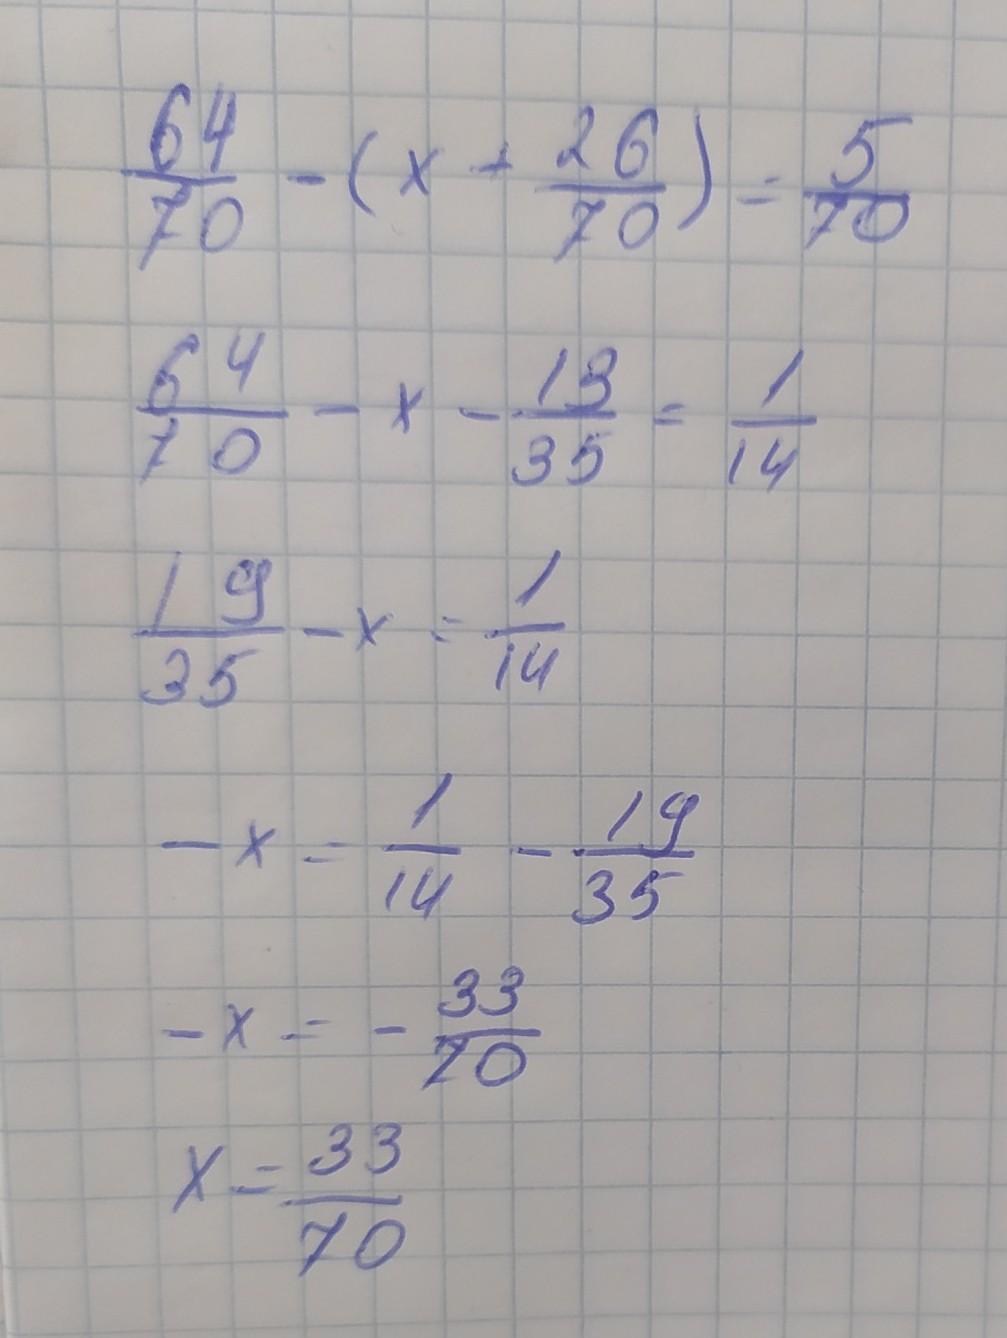 64/70 - (x + 26/70) = 5/70
64/70 - x - 13/35 = 1/14
19/35 - x = 1/14
-x = 1/14 - 19/35
-x = - 33/70
x = 33/70